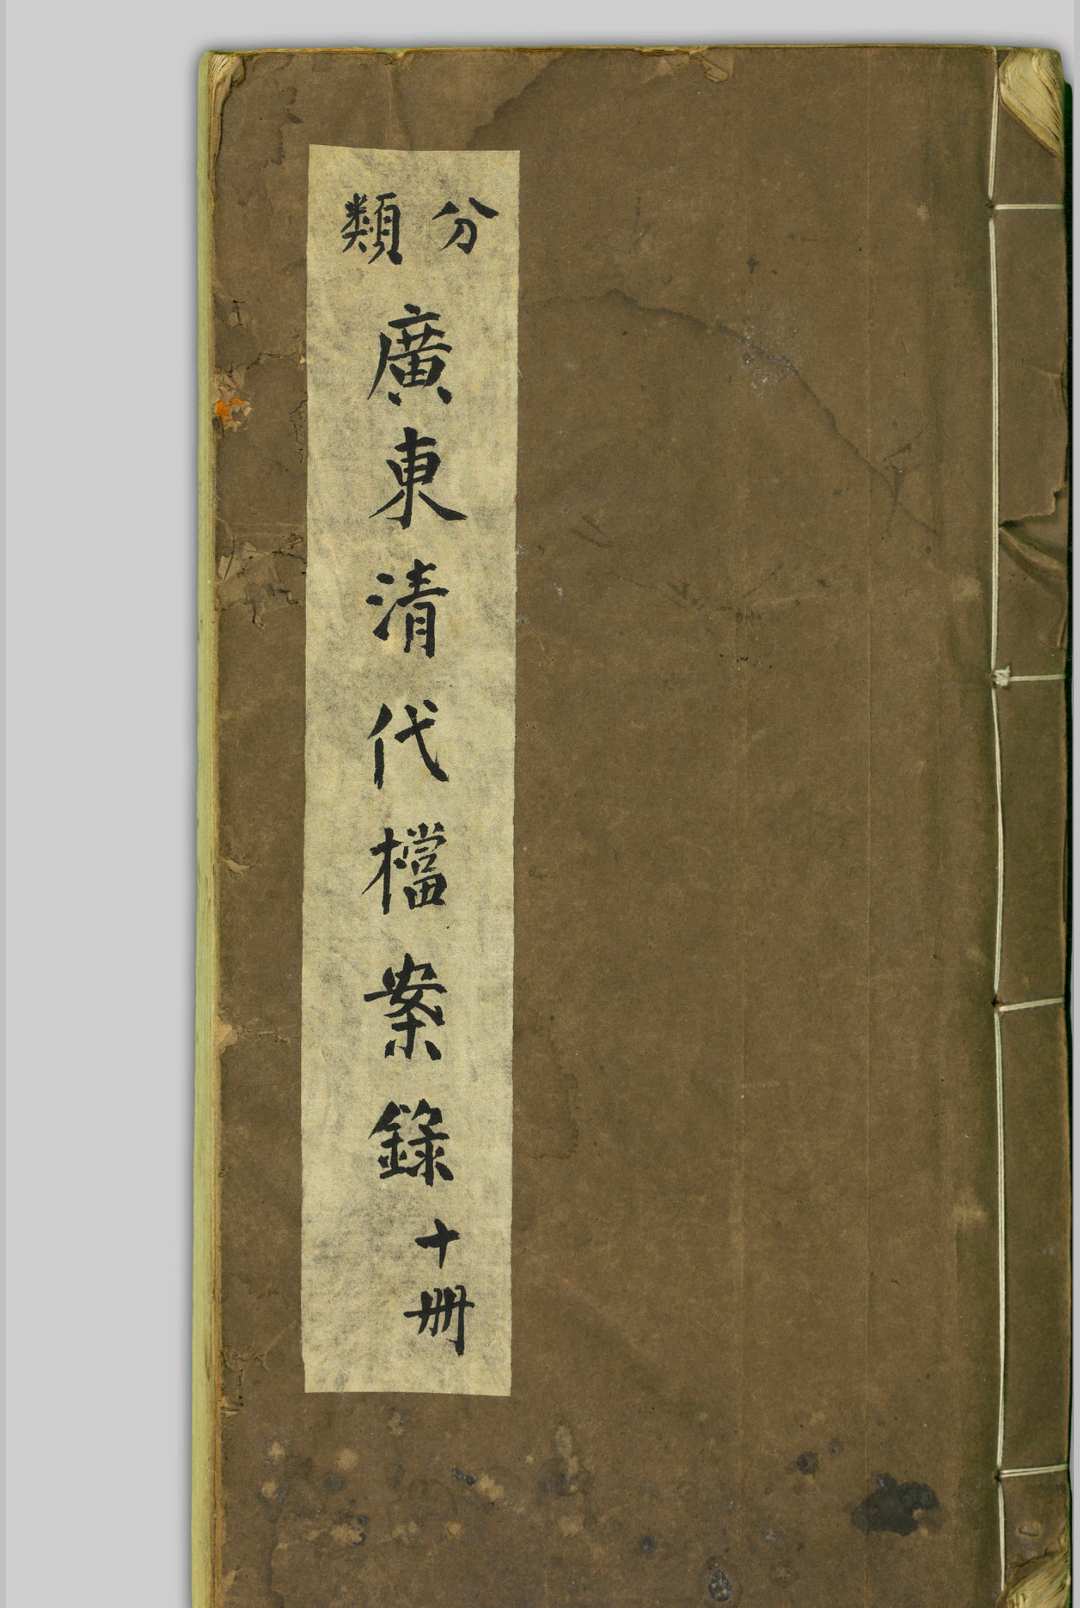 分類
廣東清代檔案錄
十册